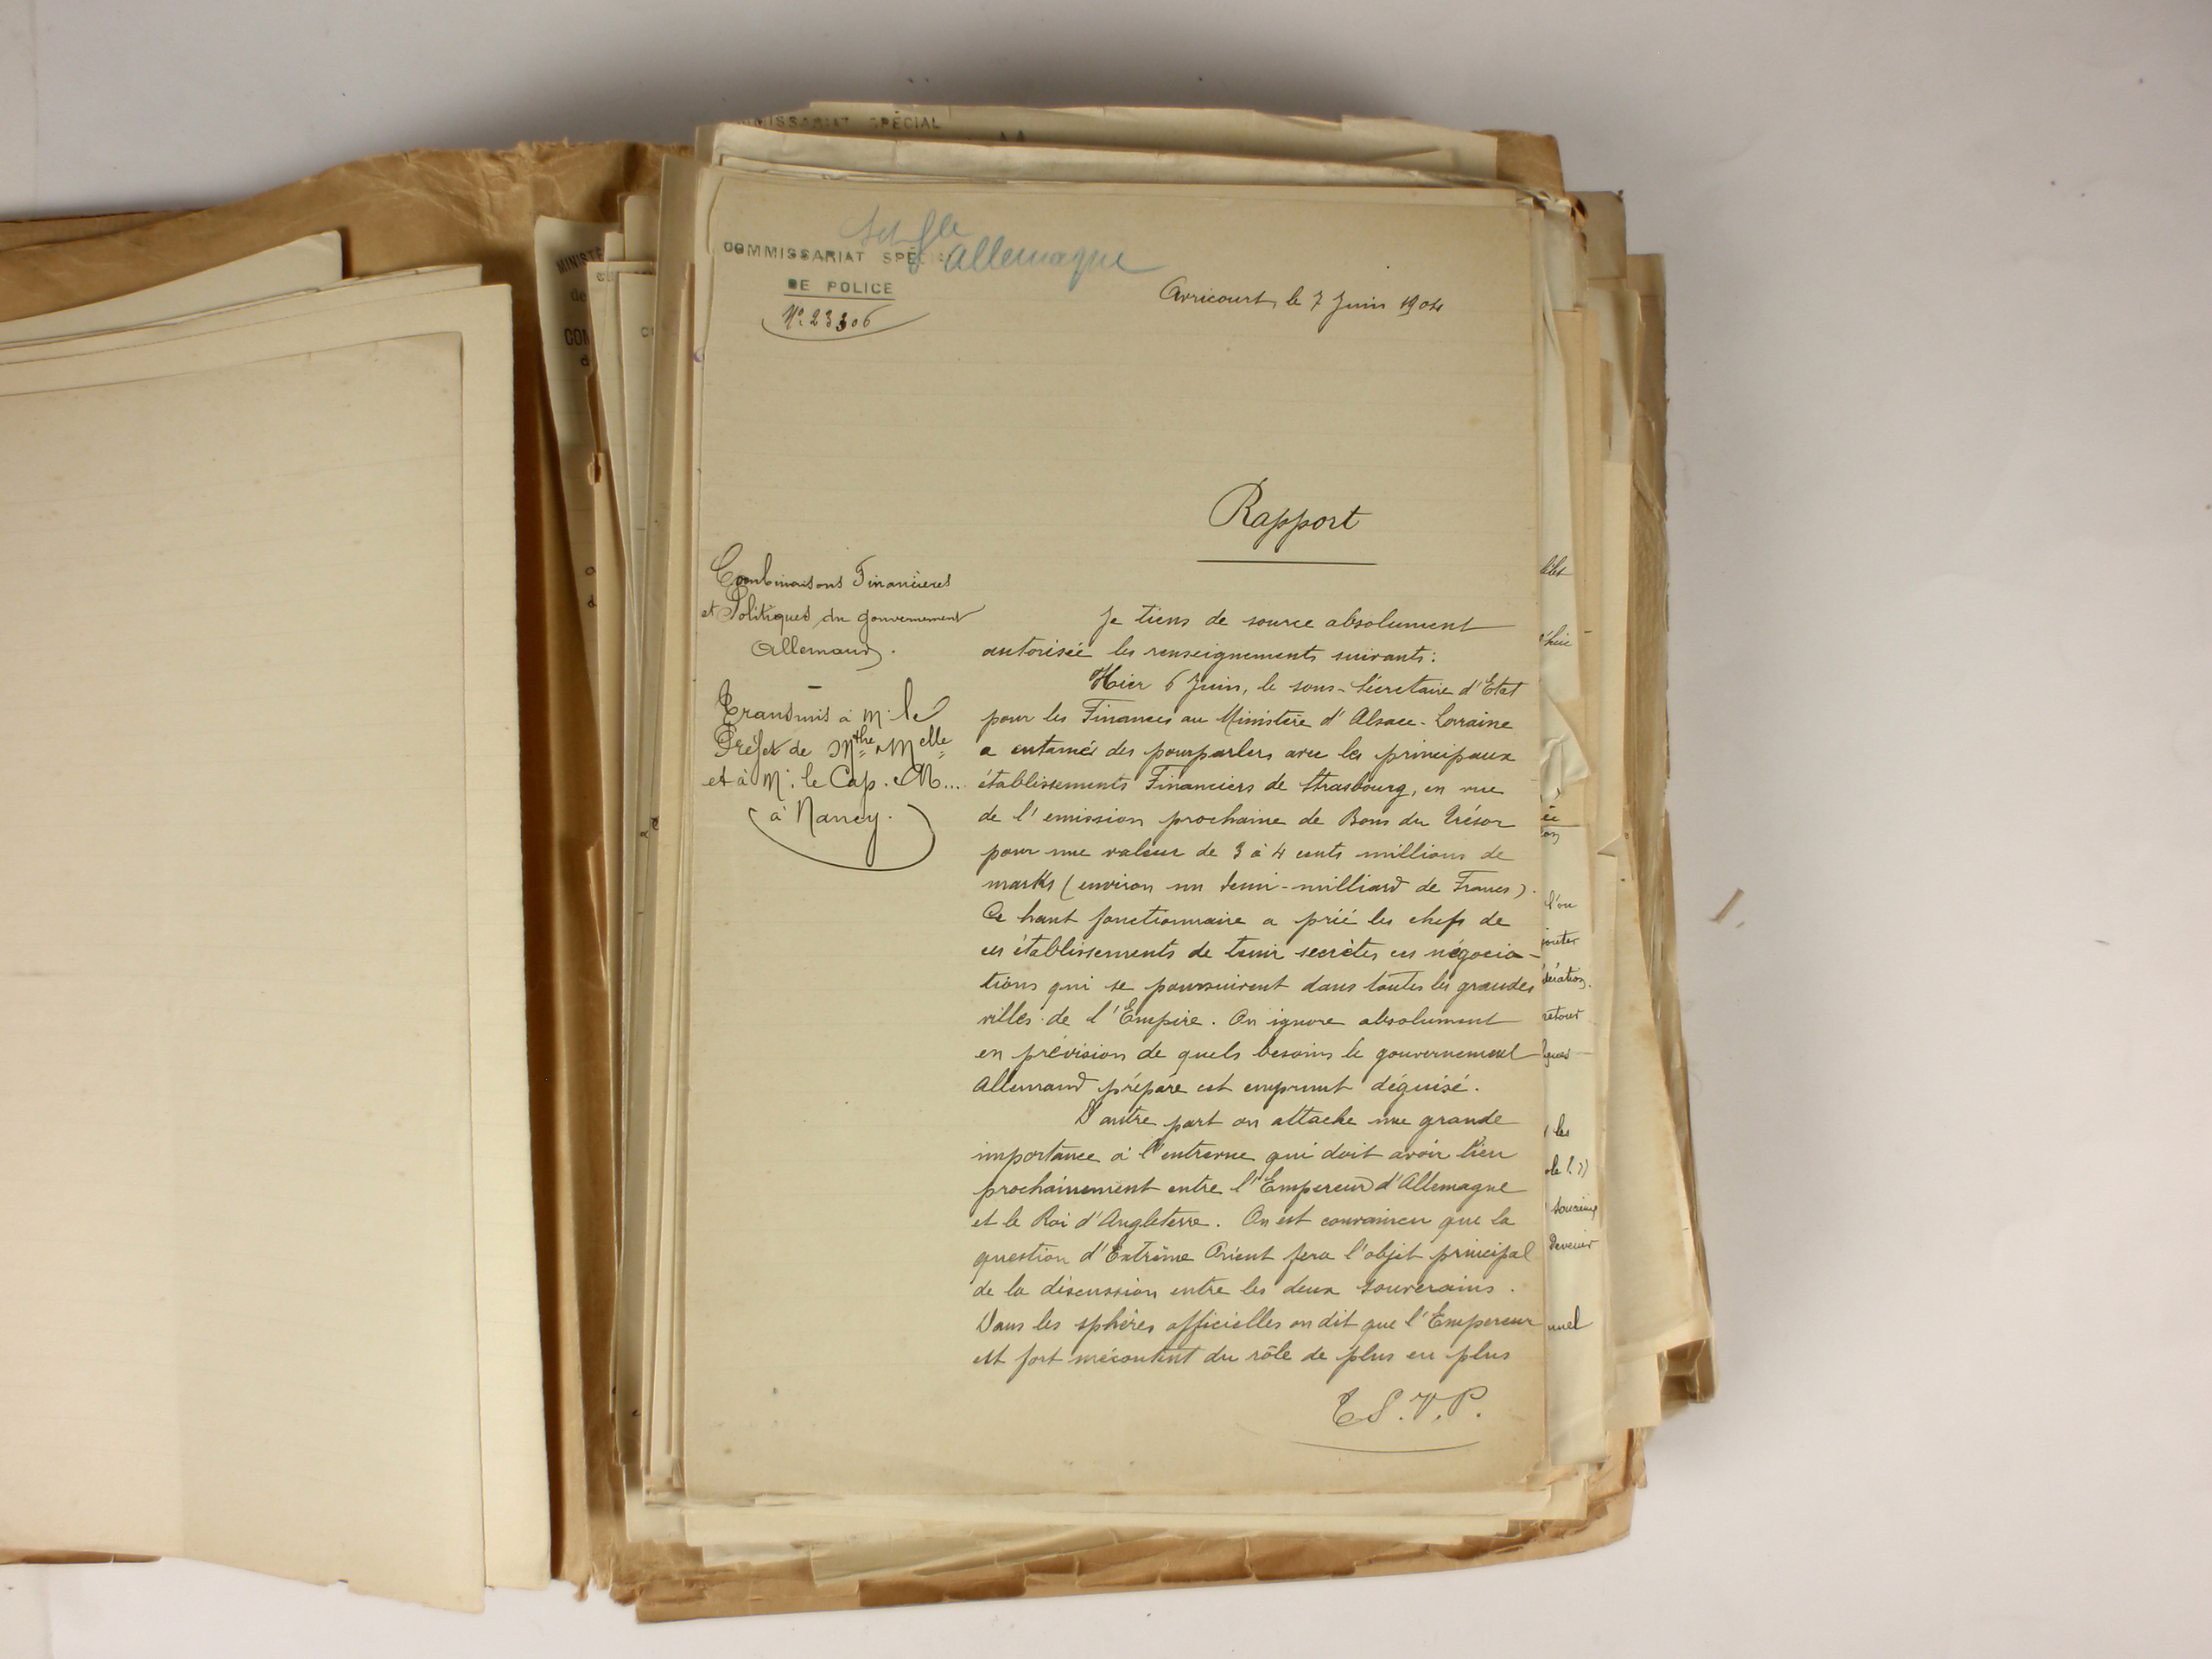 MISSARIAT SPÉCIAL
Allemagne
COMMISSARIAT SPÉCIAL
DE POLICE
N° 23306
Avricourt, le 7 Juin 1904
Rapport
Combinaisons Financières
et Politiques du gouvernement
Allemand.
Transmis à M. le
Préfet de Mthe & Melle
et à M. le Cap. M....
à Nancy.
Je tiens de source absolument
autorisée les renseignements suivants :
Hier 6 Juin, le sous-Sécretaire d'Etat
pour les Finances au Ministère d'Alsace-Lorraine
a entamés des pourparlers avec les principaux
établissements Financiers de Strasbourg, en vue
de l'emission prochaine de Bons du Trésor
pour une valeur de 3 à 4 cents millions de
marks (environ un demi-milliard de Francs).
Ce haut fonctionnaire a prié les chefs de
ces établissements de tenir secrètes ces négocia-
tions qui se poursuivent dans toutes les grandes
villes de l'Empire. On ignore absolument
en prévision de quels besoins le gouvernement
Allemand prépare cet emprunt déguisé.
D'autre part on attache une grande
importance à l'entrevue qui doit avoir lieu
prochainement entre l'Empereur d'Allemagne
et le Roi d'Angleterre. On est convaincu que la
question d'Extrême Orient fera l'objet principal
de la discussion entre les deux Souverains.
Dans les sphères officielles on dit que l'Empereur
est fort mécontent du rôle de plus en plus
T.S.V.P.